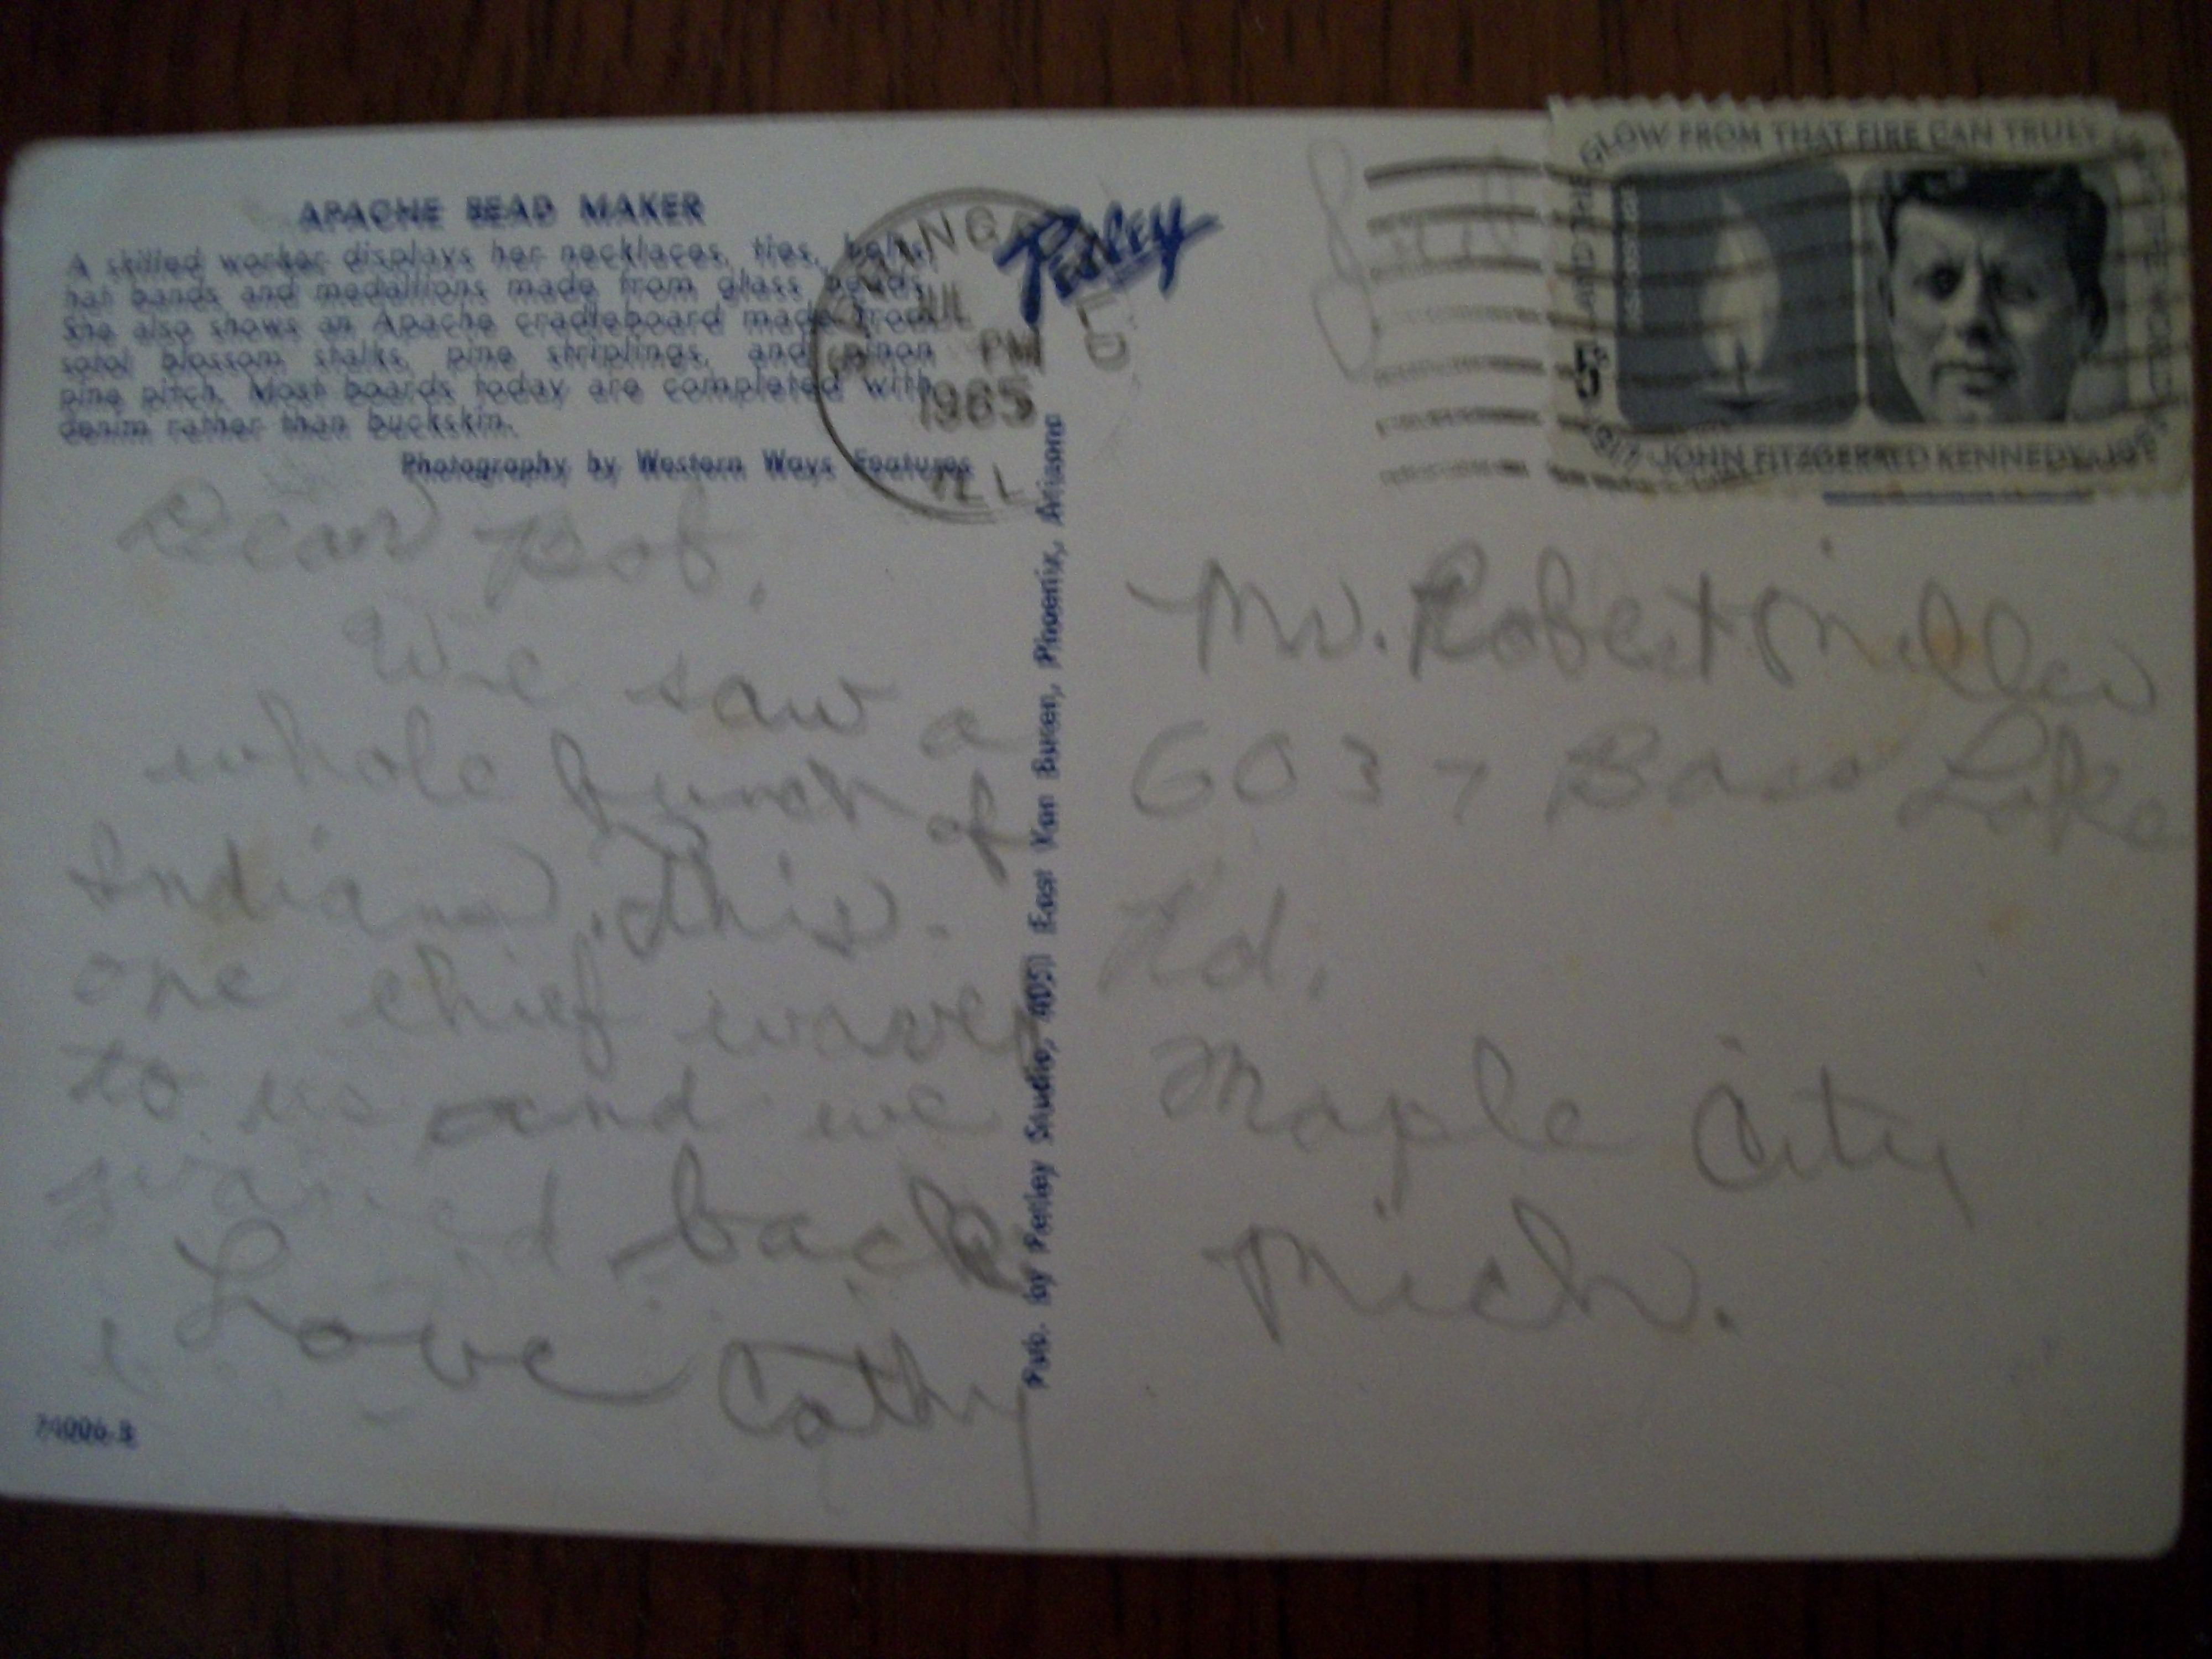 APACHE BEAD MAKER
A skilled worker displays her necklaces, ties, belts,
hat bands and medallions made from glass beads.
She also shows an Apache cradleboard made from
sotol blossom stalks, pine striplings, and pinon
pine pitch. Most boards today are completed with
denim rather than buckskin.
Photography by Western Ways Features
Dear Bob,
We saw a
whole bunch of
Indians. This
one chief waved
to us and we
waved back
Love Cathy
74006-B
Pub. by Petley Studio, 4051 East Van Buren, Phoenix, Arizona
Petley
JUL
PM
1965
ILL
AND THE GLOW FROM THAT FIRE CAN TRULY
5¢
JOHN FITZGERALD KENNEDY
Mr. Robert Miller
6037 Bass Lake
Rd.
Maple City
Mich.